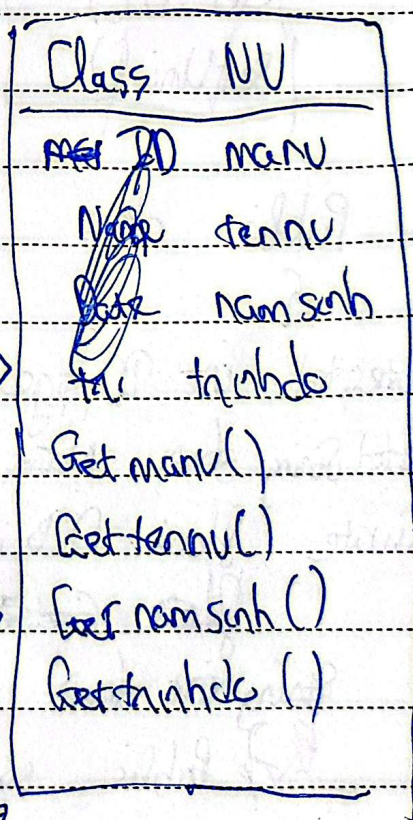 Class NV
ID manv
Name tennv
Date namsinh
tri trinhdo
Getmanv()
Gettennv()
Getnamsinh()
Gettrinhdo()